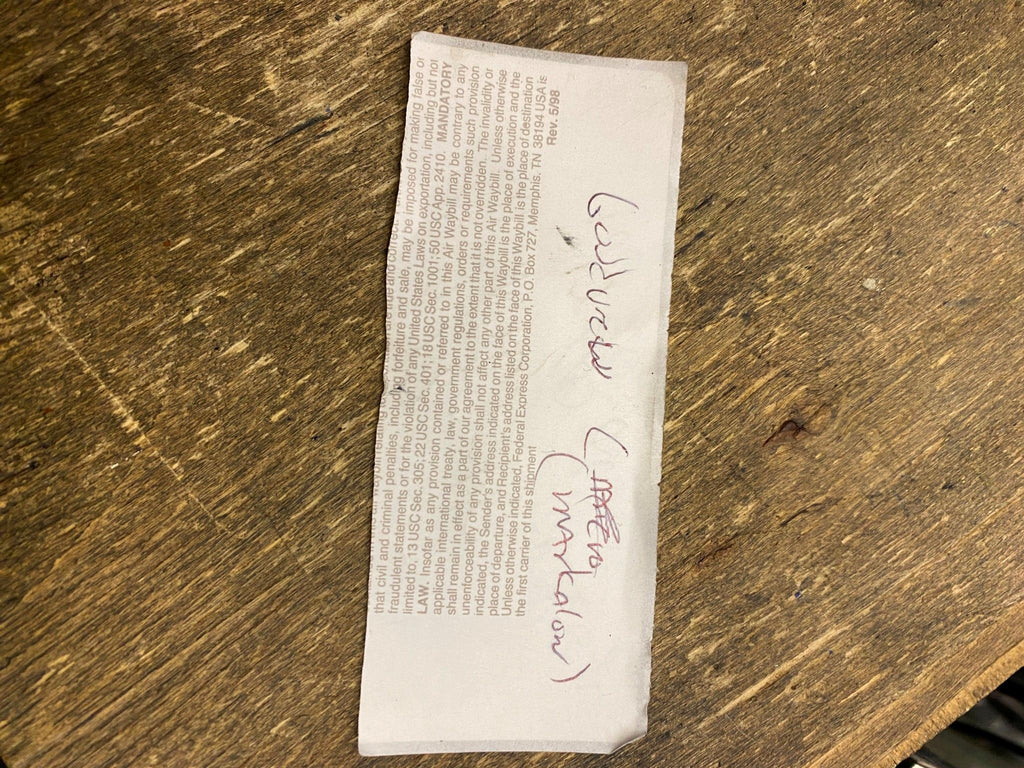 that civil and criminal penalties, including forfeiture and sale, may be imposed for making false or
fraudulent statements or for the violation of any United States Laws on exportation, including but not
limited to, 13 USC Sec. 305; 22 USC Sec. 401; 18 USC Sec. 1001; 50 USC App. 2410. MANDATORY
LAW. Insofar as any provision contained or referred to in this Air Waybill may be contrary to any
applicable international treaty, law, government regulations, orders or requirements such provision
shall remain in effect as a part of our agreement to the extent that it is not overridden. The invalidity or
unenforceability of any provision shall not affect any other part of this Air Waybill. Unless otherwise
indicated, the Sender's address indicated on the face of this Waybill is the place of execution and the
place of departure, and Recipient's address listed on the face of this Waybill is the place of destination
Unless otherwise indicated, Federal Express Corporation, P.O. Box 727, Memphis. TN 38194 USA is
the first carrier of this shipment
Rev. 5/98
(markalow)